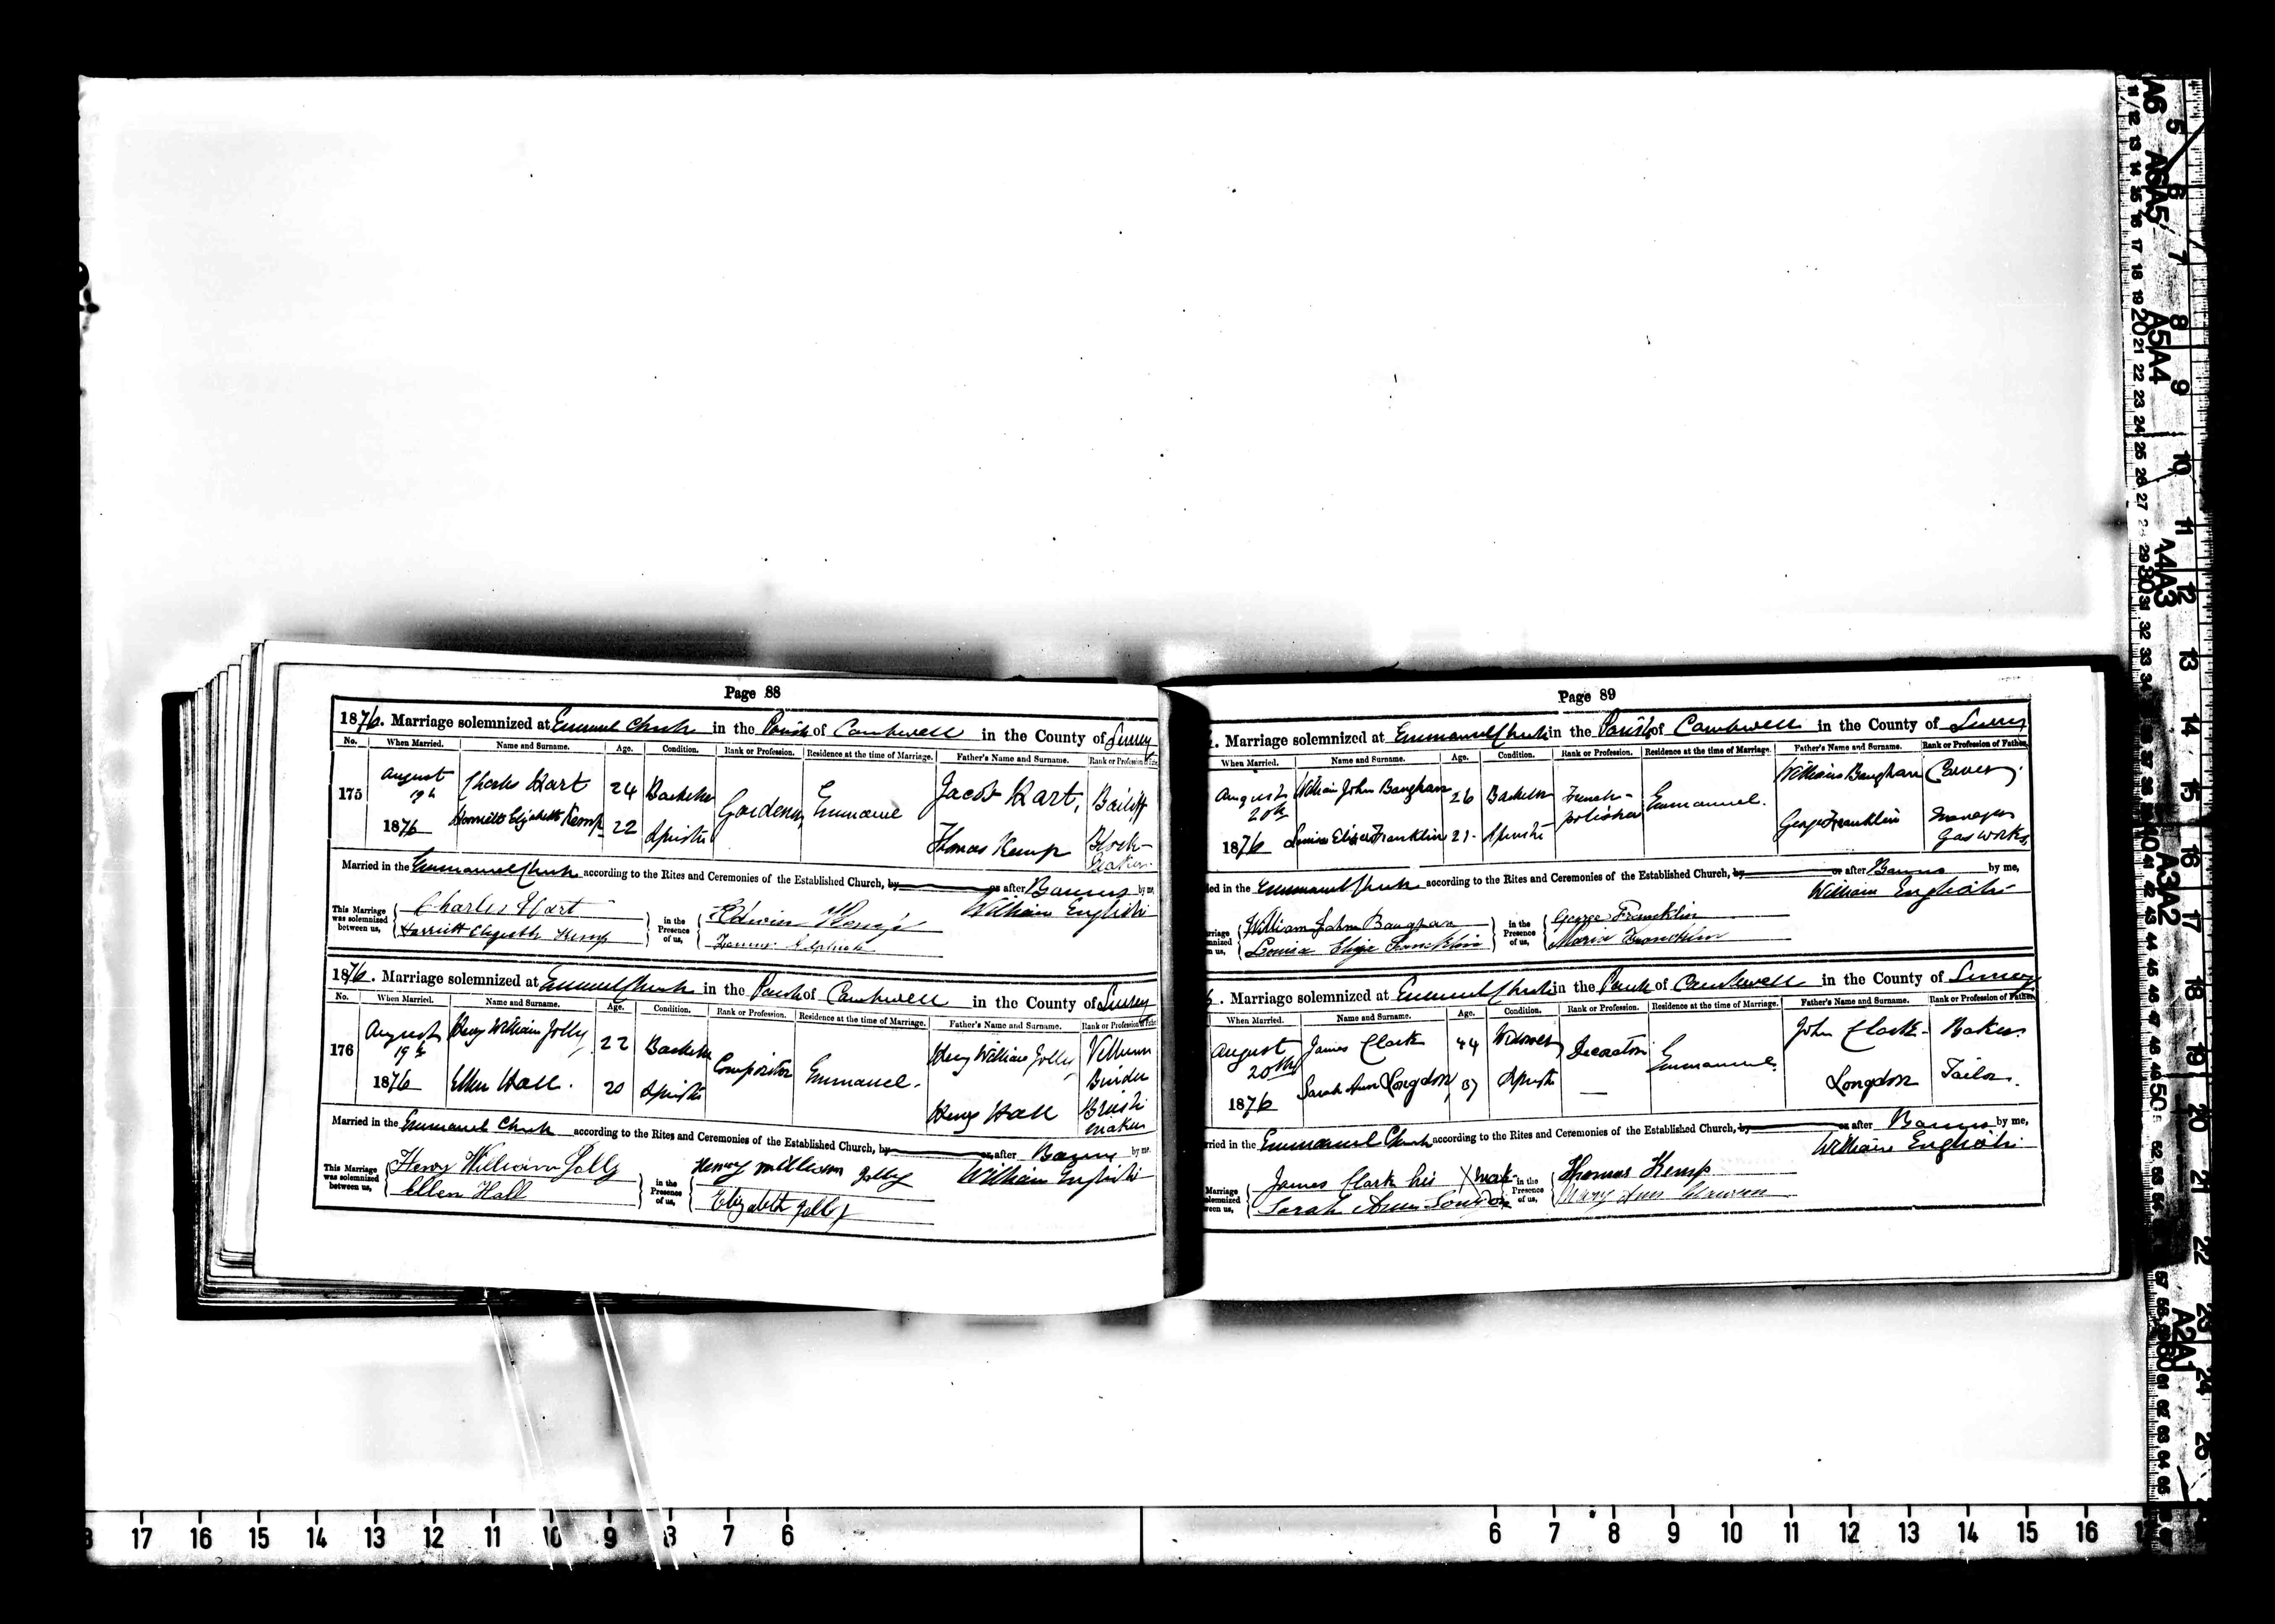 Page 88
1876. Marriage solemnized at Emmanuel Church in the Parish of Camberwell in the County of Surrey
No. When Married. Name and Surname. Age. Condition. Rank or Profession. Residence at the time of Marriage. Father's Name and Surname. Rank or Profession of Father.
175 August 19th 1876 Charles Hart 24 Bachelor Gardener Emmanuel Jacob Hart, Bailiff
Harriett Elizabeth Kemp 22 Spinster Thomas Kemp Maker
Married in the Emmanuel Church according to the Rites and Ceremonies of the Established Church, by or after Banns by me,
William English
This Marriage was solemnized between us, Charles Hart in the Presence of us, Edwin Kemp
Harriett Elizabeth Kemp
1876. Marriage solemnized at Emmanuel Church in the Parish of Camberwell in the County of Surrey
No. When Married. Name and Surname. Age. Condition. Rank or Profession. Residence at the time of Marriage. Father's Name and Surname. Rank or Profession of Father.
176 August 19th 1876 Henry William Jolly 22 Bachelor Compositor Emmanuel. Henry William Jolly Vellum Binder
Ellen Hall. 20 Spinster Henry Hall Brush maker
Married in the Emmanuel Church according to the Rites and Ceremonies of the Established Church, by or after Banns by me,
William English
This Marriage was solemnized between us, Henry William Jolly in the Presence of us, Henry William Jolly
Ellen Hall Elizabeth Jolly
Page 89
Marriage solemnized at Emmanuel Church in the Parish of Camberwell in the County of Surrey
When Married. Name and Surname. Age. Condition. Rank or Profession. Residence at the time of Marriage. Father's Name and Surname. Rank or Profession of Father.
August 20th 1876 William John Baughan 26 Bachelor French-polisher Emmanuel. William Baughan Carver
Louisa Eliza Franklin 21 Spinster George Franklin Manager Gas works
Emmanuel Church according to the Rites and Ceremonies of the Established Church, by or after Banns by me,
William English
William John Baughan in the Presence of us, George Francklin
Louisa Eliza Francklin Maria Francklin
Marriage solemnized at Emmanuel Church in the Parish of Camberwell in the County of Surrey
When Married. Name and Surname. Age. Condition. Rank or Profession. Residence at the time of Marriage. Father's Name and Surname. Rank or Profession of Father.
August 20th 1876 James Clark 44 Widower Decorator Emmanuel. John Clark Baker
Sarah Ann Longdon 37 Spinster — Longdon Tailor.
Emmanuel Church according to the Rites and Ceremonies of the Established Church, by or after Banns by me,
William English
James Clark his X mark in the Presence of us, Thomas Kemp
Sarah Ann Mary Ann